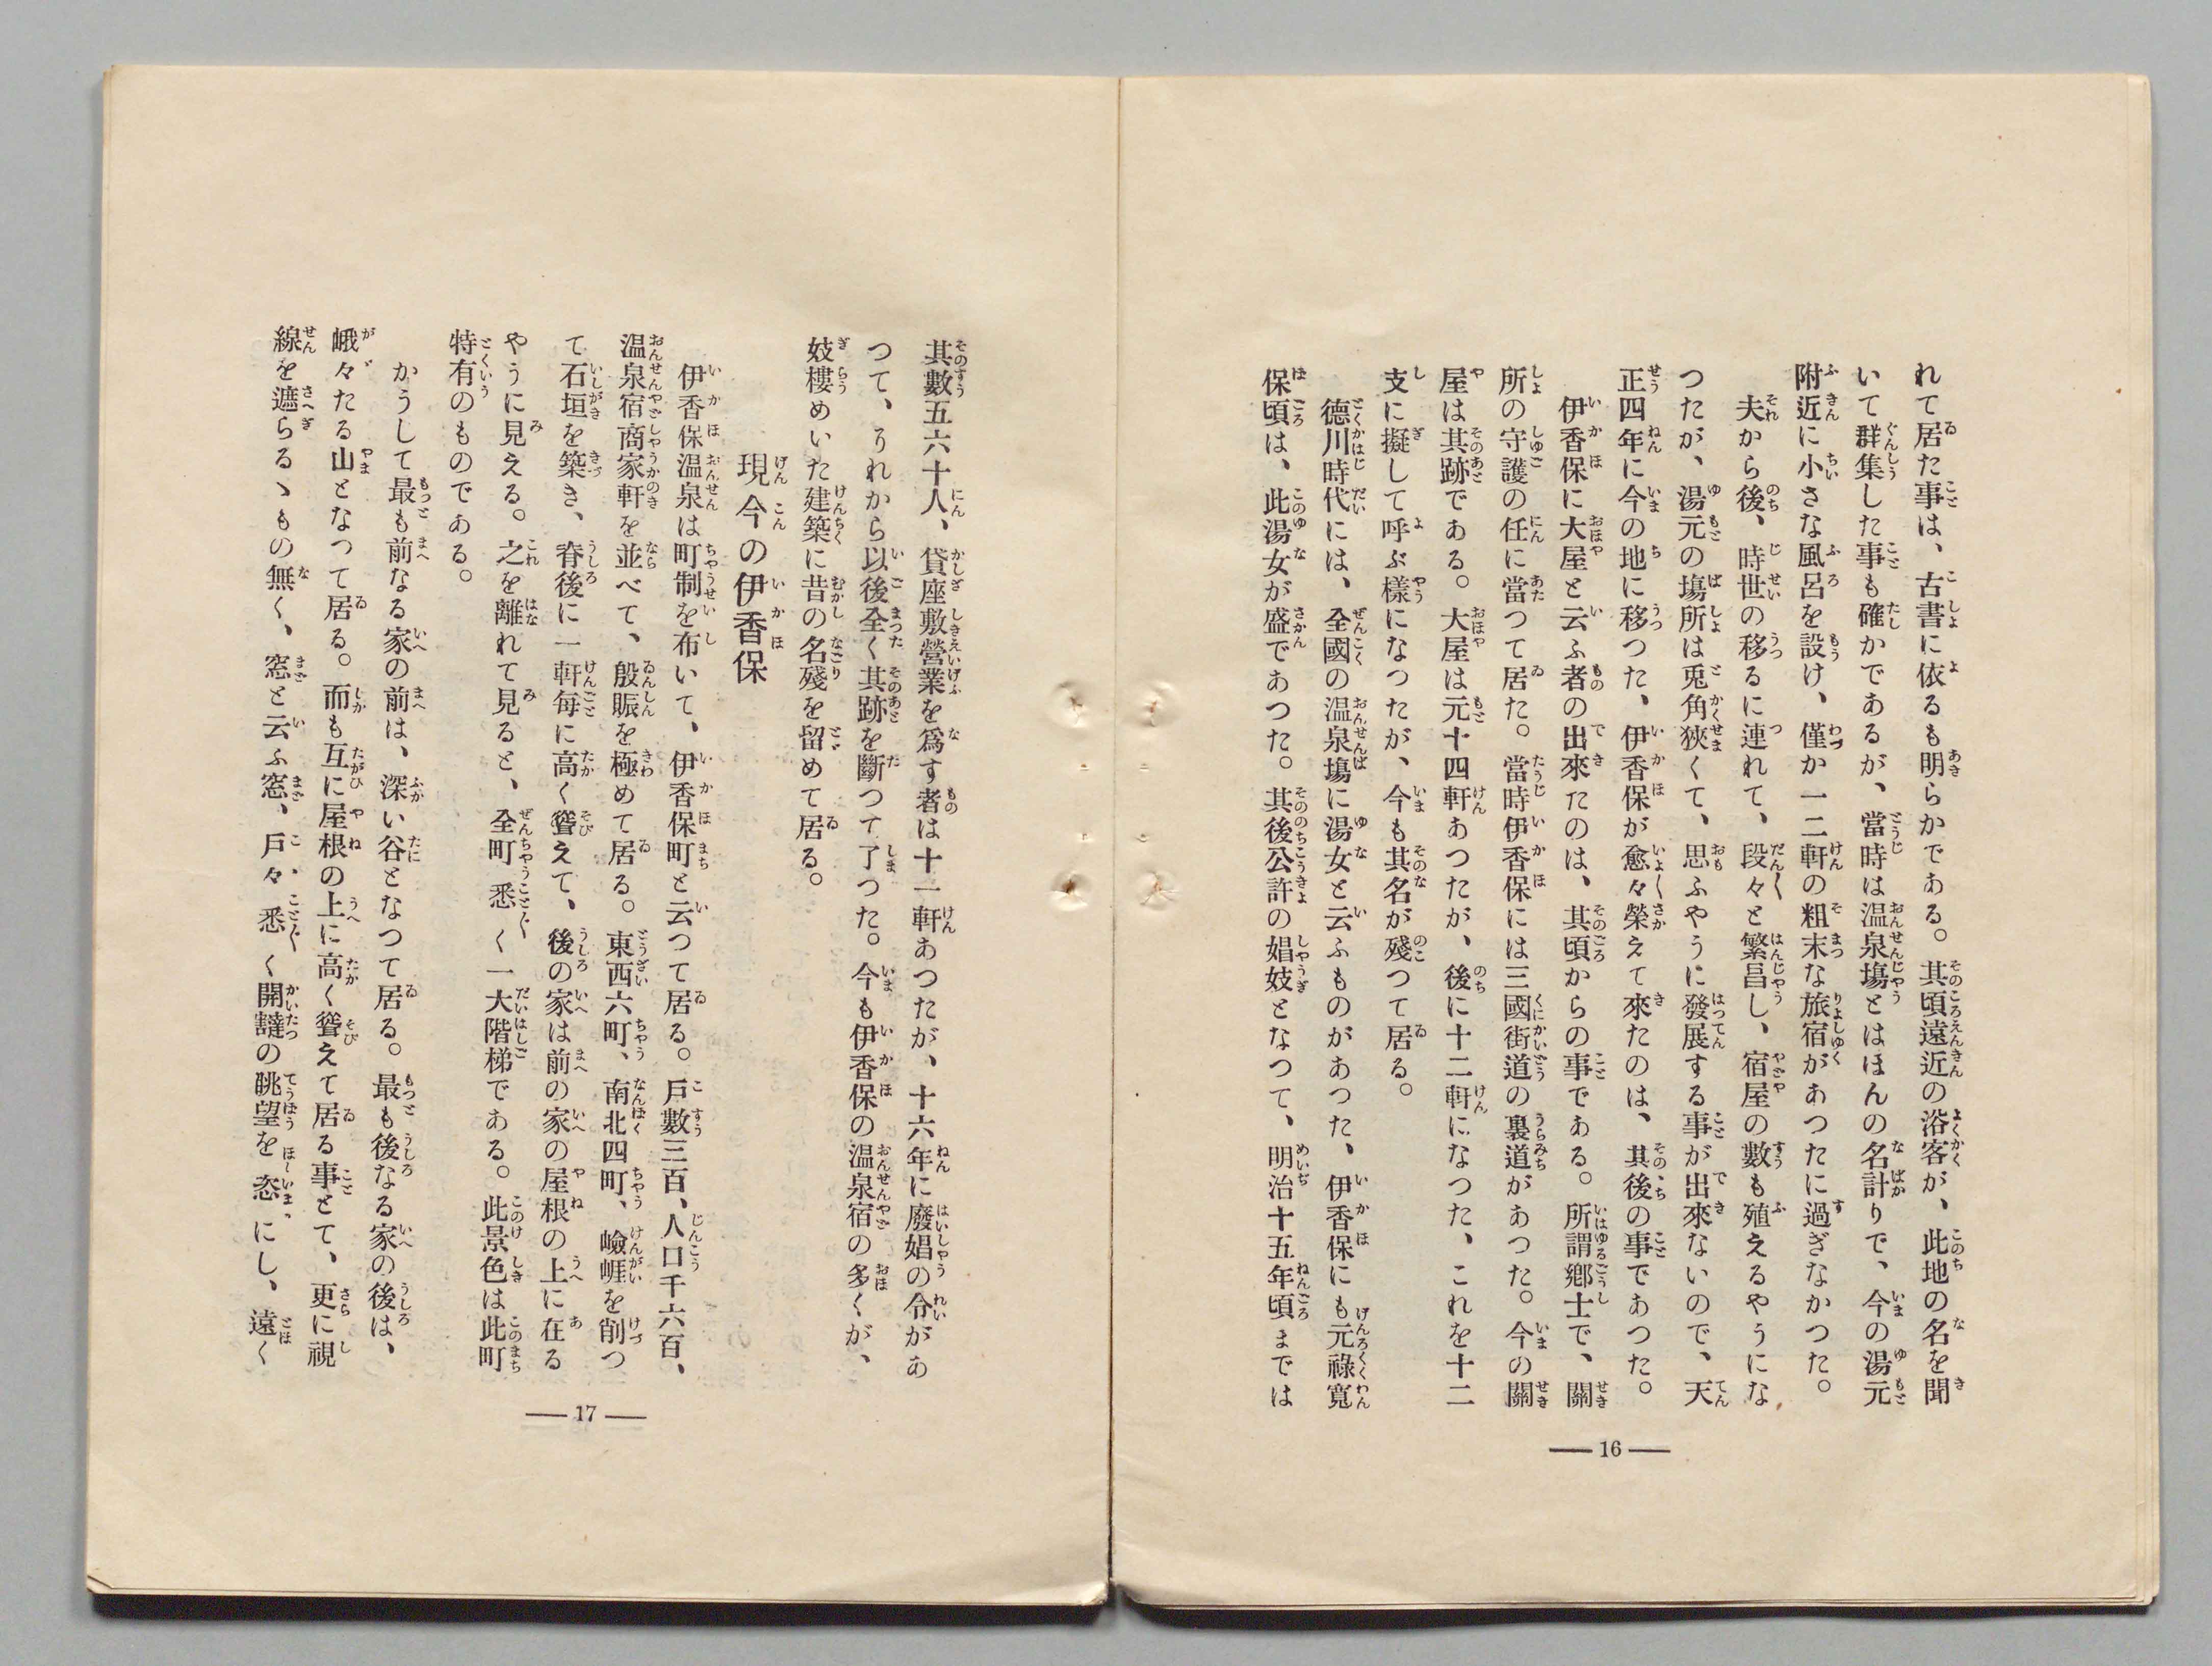 れて居た事は、古書に依るも明らかである。其頃遠近の浴客が、此地の名を聞
いて群集した事も確かであるが、當時は温泉塲とはほんの名計りで、今の湯元
附近に小さな風呂を設け、僅か一二軒の粗末な旅宿があつたに過ぎなかつた。
夫から後、時世の移るに連れて、段々と繁昌し、宿屋の數も殖えるやうにな
つたが、湯元の塲所は兎角狹くて、思ふやうに發展する事が出來ないので、天
正四年に今の地に移つた、伊香保が愈々榮えて來たのは、其後の事であつた。
伊香保に大屋と云ふ者の出來たのは、其頃からの事である。所謂鄕士で、關
所の守護の任に當つて居た。當時伊香保には三國街道の裏道があつた。今の關
屋は其跡である。大屋は元十四軒あつたが、後に十二軒になつた、これを十二
支に擬して呼ぶ樣になつたが、今も其名が殘つて居る。
德川時代には、全國の温泉塲に湯女と云ふものがあつた、伊香保にも元祿寬
保頃は、此湯女が盛であつた。其後公許の娼妓となつて、明治十五年頃までは
― 16 ―
其數五六十人、貸座敷營業を爲す者は十一軒あつたが、十六年に廢娼の令があ
つて、それから以後全く其跡を斷つて了つた。今も伊香保の温泉宿の多くが、
妓樓めいた建築に昔の名殘を留めて居る。
現今の伊香保
伊香保温泉は町制を布いて、伊香保町と云つて居る。戶數三百、人口千六百、
温泉宿商家軒を並べて、殷賑を極めて居る。東西六町、南北四町、嶮崕を削つ
て石垣を築き、脊後に一軒每に高く聳えて、後の家は前の家の屋根の上に在る
やうに見える。之を離れて見ると、全町悉く一大階梯である。此景色は此町
特有のものである。
かうして最も前なる家の前は、深い谷となつて居る。最も後なる家の後は、
峨々たる山となつて居る。而も互に屋根の上に高く聳えて居る事とて、更に視
線を遮らるゝもの無く、窓と云ふ窓、戶々、悉く開豁の眺望を恣にし、遠く
― 17 ―